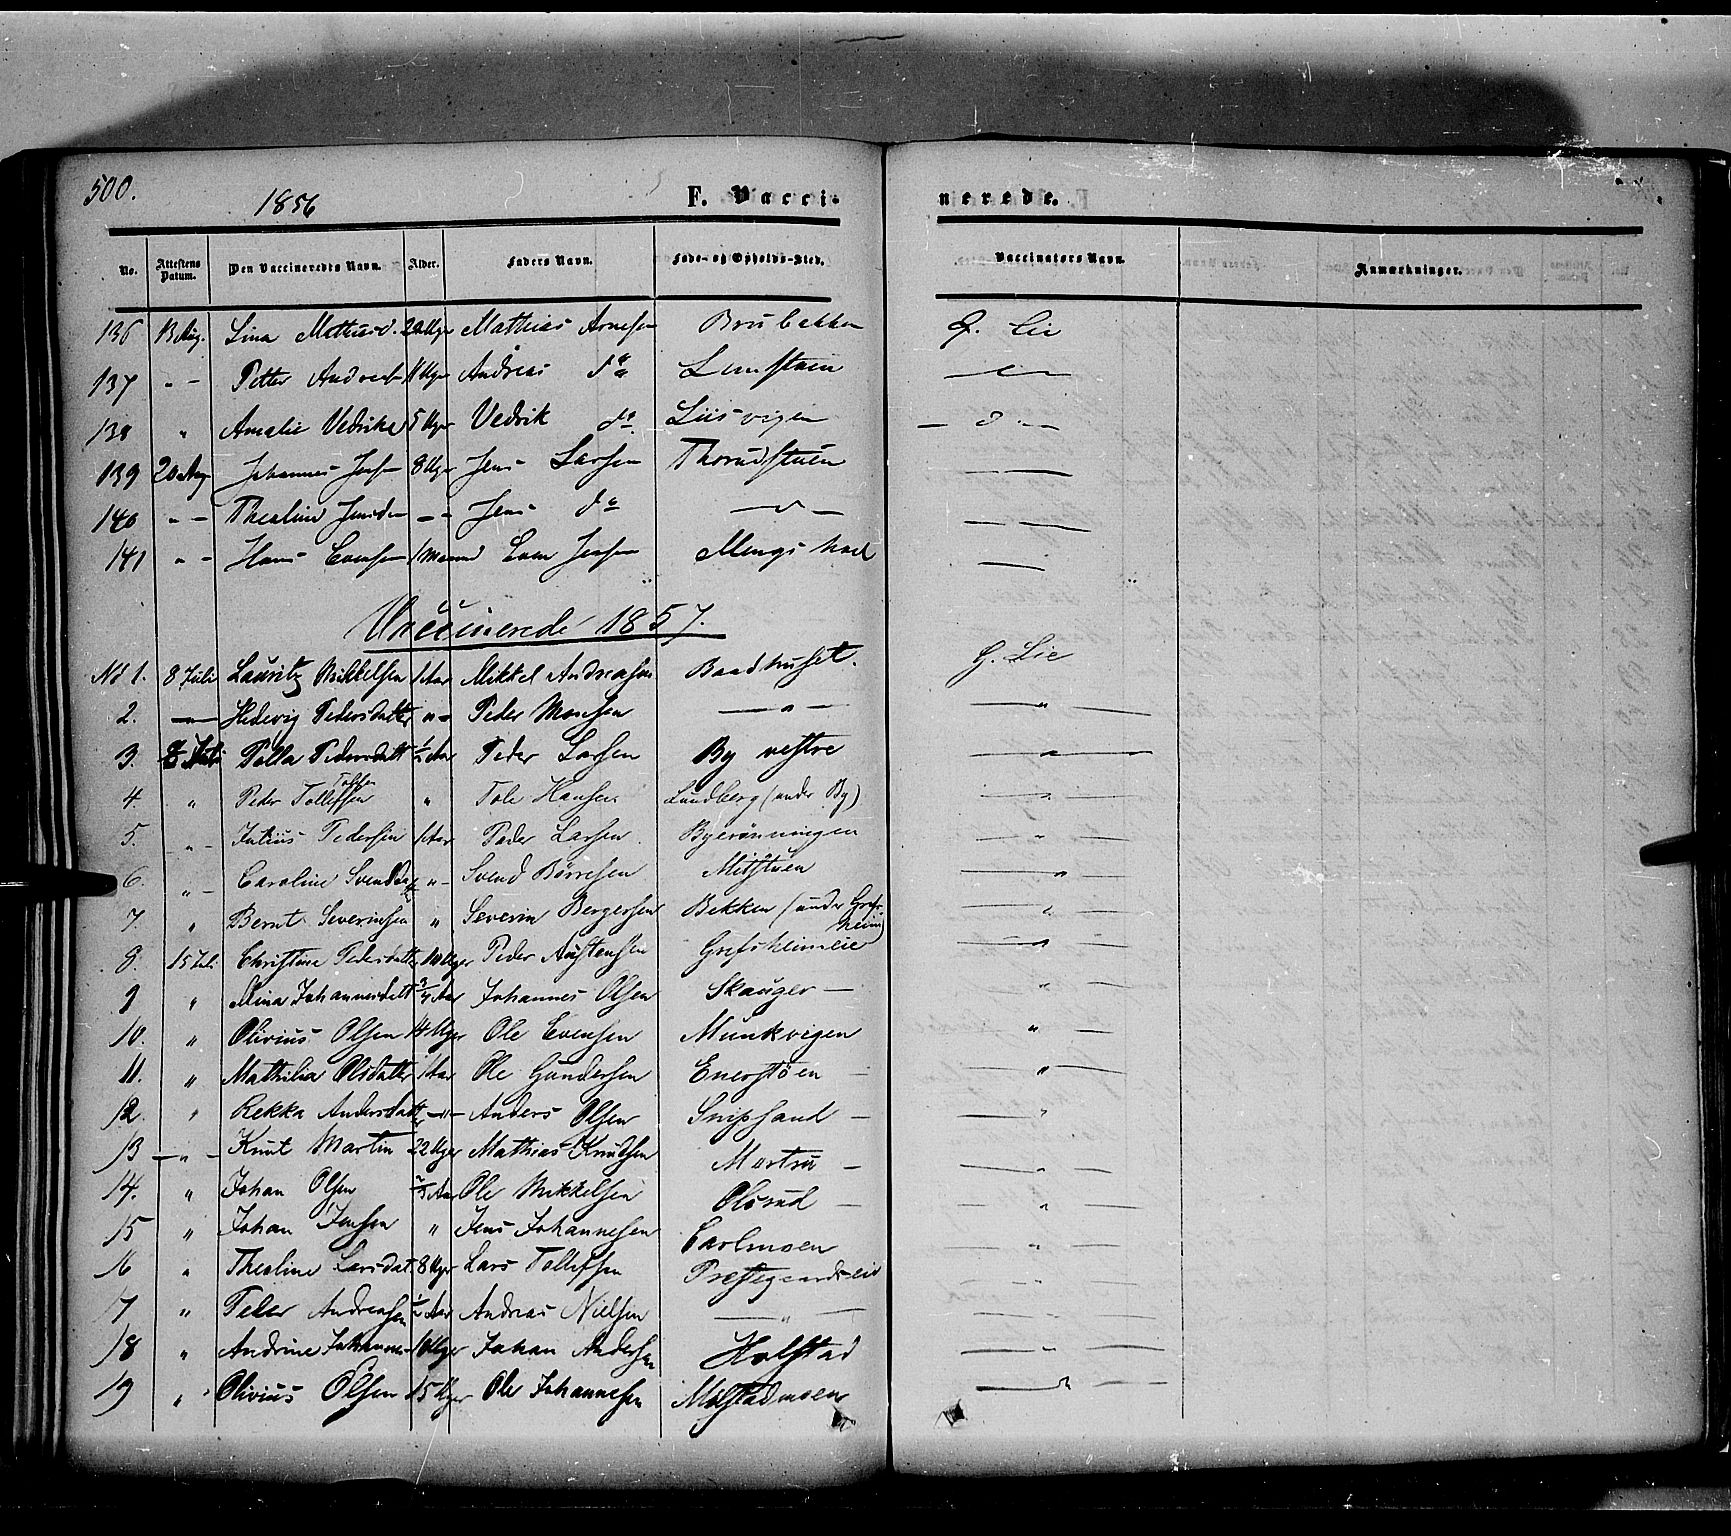 500.
1856
F. Vaccinerede.
No. Attestens Datum. Den Vaccineredts Navn. Alder. Faders Navn. Føde- og Opholds-Sted. Vaccinators Navn. Anmærkninger.
136 13 Aug. Lina Mathiasd. Uger Mathias Arnesen Brubakken G. Lie
137 " — Petter Andreas Uger Andreas do —"—
138 " Amalie Vedrika 5 Uger Vedrik do Liisvigen — " —
139 20 Aug Johannes 8 Uger Jens Larsen Thorudstuen — —
140 " — Thealine — " Jens do —"— — —
141 " — Hans Evensen 1 Maaned Even Jensen Mengshoel —
Vaccinerede 1857.
No 1. 8 Juli Lauritz Mikkelsen 1 Aar Mikkel Andreasen Baadhuset. G. Lie
2. —"— Hedevig Pedersdatter "— Peder Monsen —"— —"—
3. 8 Juli Polla Pedersdatt 1/2 Aar Peder Larsen By vestre —"—
4. " Peder Tollefsen Tolsen " Tole Hansen Lundberg (under By) —"—
5. "— Julius Pedersen 1 Aar Peder Larsen Byerönningen —"—
6. "— Caroline Svendsd "— Svend Börresen Midstuen —"—
7. " Bernt Severinsen " Severin Bergersen Bekken (under Grefsheim) —"—
8. 15 Juli Christine Pedersdatt 10 Uger Peder Austensen Grefsheimeie —"—
9 " Mina Johannesdatt 3/4 Aar Johannes Olsen Skauger — —"—
10. " Olivius Olsen 14 Uger Ole Evensen Munkvigen —"—
11. " Mathilia Olsdatter 1 Aar Ole Gundersen Enerstöen — —"—
12. " Rekka Andersdatt —"— Anders Olsen Snipsand — —"—
13 —"— Knut Martin 22 Uger Mathias Knudsen — —"—
14. " Johan Olsen Aar Ole Mikkelsen Olsrud — —"—
15 " Johan Jensen " Jens Johannesen Carlmoen —"—
16 " Thealine Larsdat 8 Uger Lars Tollefsen Prestegaardseie —"—
17 " Peder Andreasen 1/2 Aar Andreas Nielsen —"— —"—
18 " Andrine Johannes Uger Johan Andersen Holstad —"—
19 " Olivius Olsen 15 Uger Ole Johannesen Molstadmoen —"—